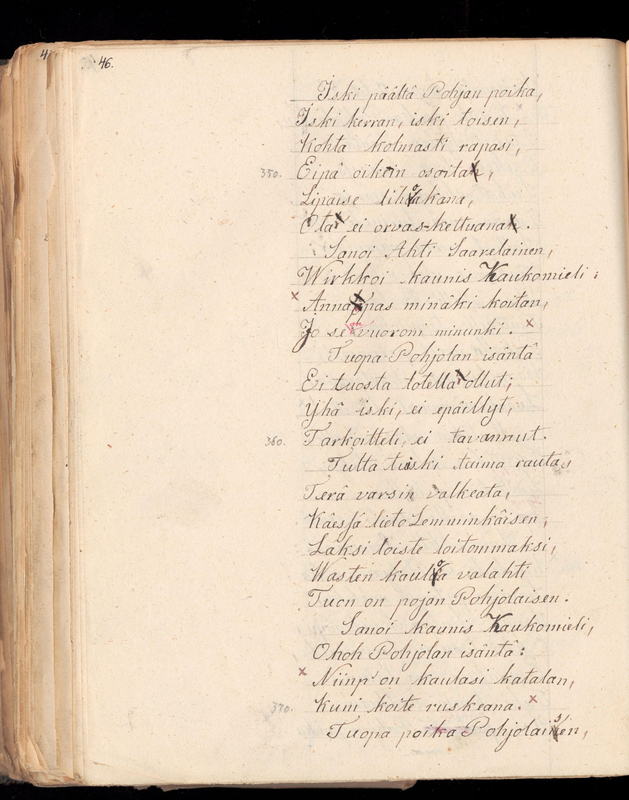 46.
Iski päältä Pohjan poika,
Iski kerran, iski toisen,
Kohta kolmasti rapasi,
350. Eipä oikein osoita,
Lipaise lihoakana,
Ota ei orvas-kettuana.
Sanoi Ahti Saarelainen,
Wirkkoi kaunis Kaukomieli:
× Annappas minäki koitan,
Jo se on vuoroni minunki. ×
Tuopa Pohjolan isäntä
Ei tuosta totella ollut;
Yhä iski, ei epäillyt,
360. Tarkoitteli, ei tavannut.
Tutta tuiski tuima rauta,
Terä varsin valkeata,
Käessä lieto Lemminkäisen;
Laksi loiste loitommaksi,
Wasten kauloa valahti
Tuon on pojan Pohjolaisen.
Sanoi kaunis Kaukomieli,
Ohoh Pohjolan isäntä:
× Niinp' on kaulasi katalan,
370. Kuni koite ruskeana. ×
Tuopa poika Pohjolaisen,